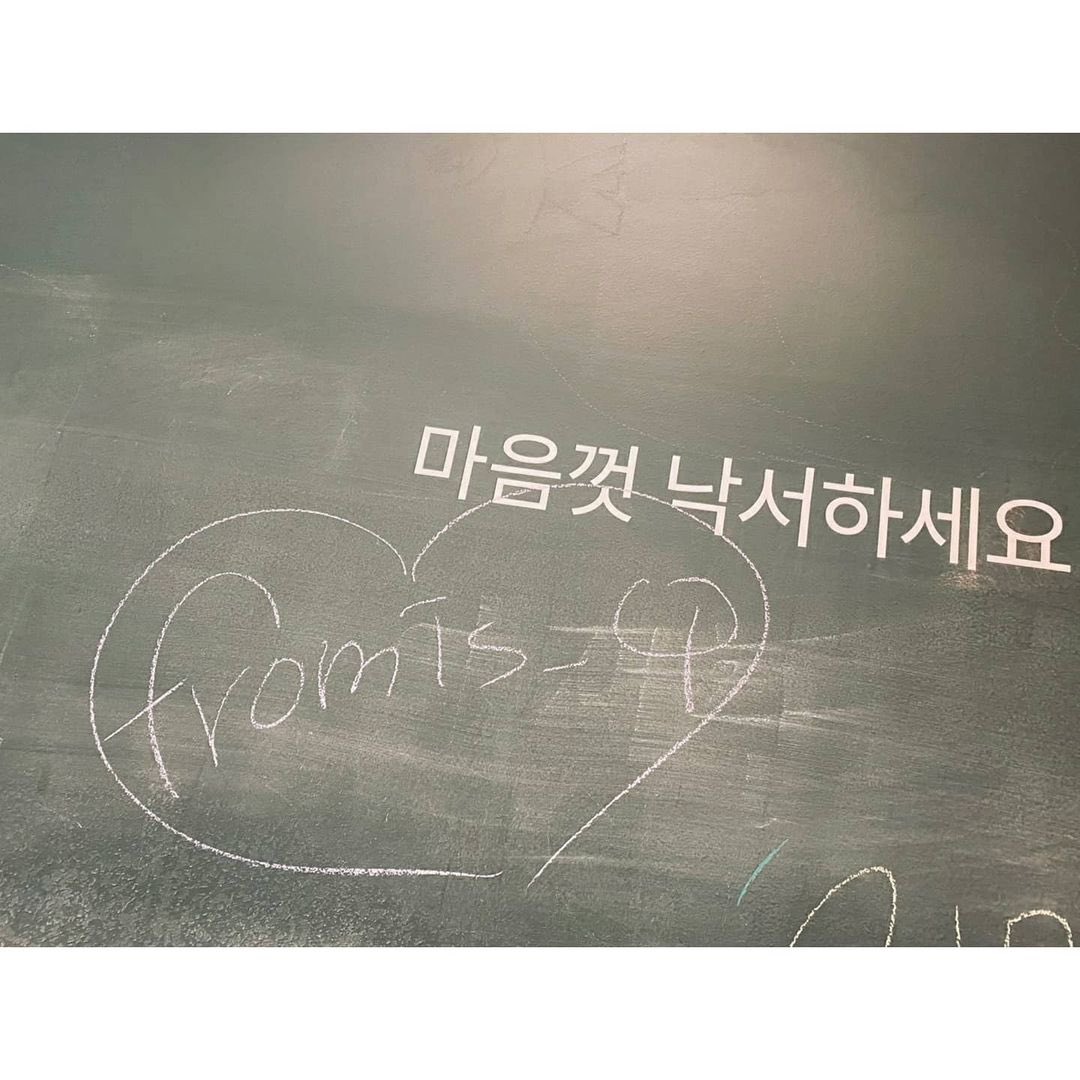 마음껏 낙서하세요
fromis_9